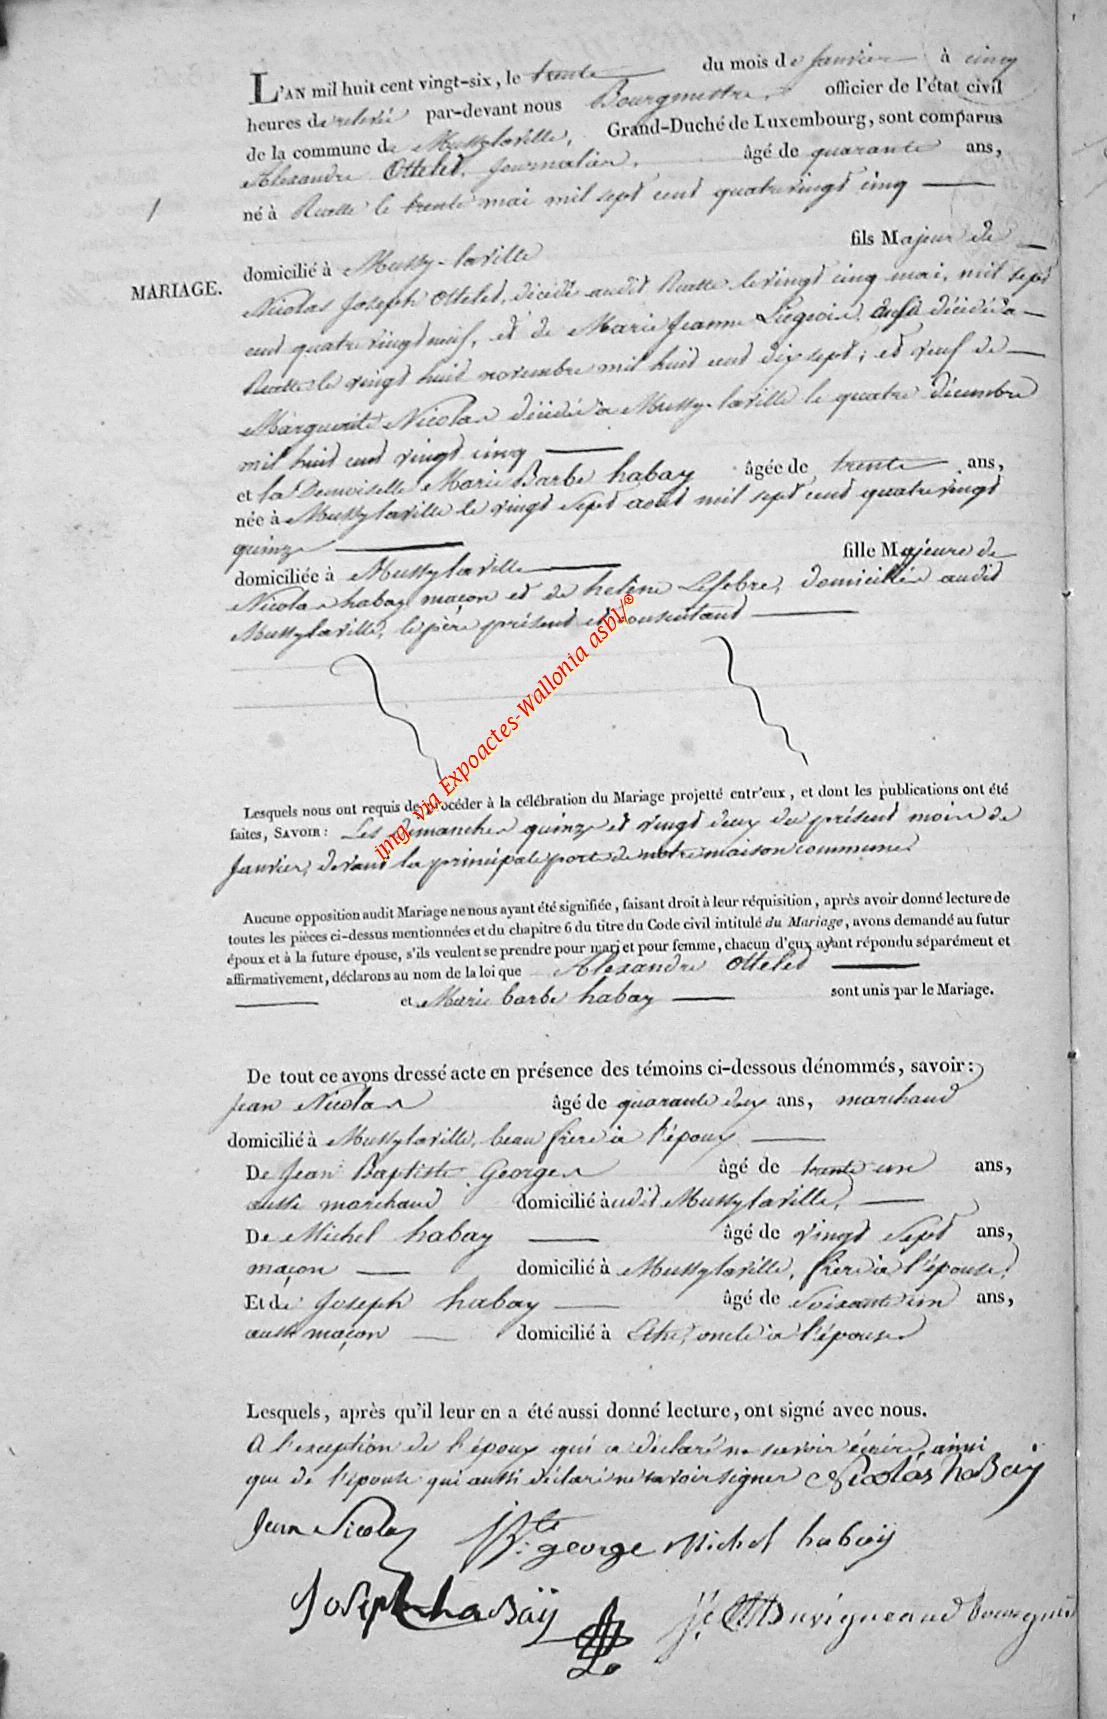 L'AN mil huit cent vingt-six, le trente du mois de Janvier à cinq
heures de relevée par-devant nous Bourgmestre, officier de l'état civil
de la commune de Mussylaville, Grand-Duché de Luxembourg, sont comparus
Alexandre Ottelet, Journalier, âgé de quarante ans,
né à Ruette le trente mai mil sept cent quatrevingt cinq
domicilié à Mussy-laville fils Majeur de
MARIAGE.
Nicolas Joseph Ottelet, décédé audit Ruette le vingt cinq mai, mil sept
cent quatrevingt neuf, et de Marie Jeanne Liégeois, aussi décédée a
Ruette le vingt huit novembre mil huit cent dix sept; et veuf de
Marguerite Nicolas décédée a Mussy-laville le quatre décembre
mil huit cent vingt cinq
et la Demoiselle Marie Barbe habay âgée de trente ans,
née à Mussylaville le vingt sept août mil sept cent quatrevingt
quinze
domiciliée à Mussylaville fille Majeure de
Nicolas habay maçon et de helène Lefebre, domiciliés audit
Mussylaville, le père présent et consentant
img via Expoactes-Wallonia asbl/®
Lesquels nous ont requis de procéder à la célébration du Mariage projetté entr'eux, et dont les publications ont été
faites, SAVOIR: Les dimanches quinze et vingt deux du présent mois de
Janvier, devant la principale porte de notre maison commune
Aucune opposition audit Mariage ne nous ayant été signifiée, faisant droit à leur réquisition, après avoir donné lecture de
toutes les pièces ci-dessus mentionnées et du chapitre 6 du titre du Code civil intitulé du Mariage, avons demandé au futur
époux et à la future épouse, s'ils veulent se prendre pour mari et pour femme, chacun d'eux ayant répondu séparément et
affirmativement, déclarons au nom de la loi que Alexandre Ottelet
et Marie barbe habay sont unis par le Mariage.
De tout ce avons dressé acte en présence des témoins ci-dessous dénommés, savoir:
Jean Nicolas âgé de quarante deux ans, marchand
domicilié à Mussylaville, beau frère à l'époux
De Jean Baptiste Georges âgé de trente un ans,
aussi marchand domicilié audit Mussylaville,
De Michel habay âgé de vingt sept ans,
maçon domicilié à Mussylaville, frère à l'épouse,
Et de Joseph habay âgé de soixante un ans,
aussi maçon domicilié à Ethe, oncle à l'épouse
Lesquels, après qu'il leur en a été aussi donné lecture, ont signé avec nous.
A l'exception de l'époux qui a déclaré ne savoir écrire, ainsi
que de l'épouse qui aussi déclaré ne savoir signer Nicolas haBay
Jean Nicolas JBte george Michel habaÿ
Joseph haBaÿ Duvigneaud bourgm